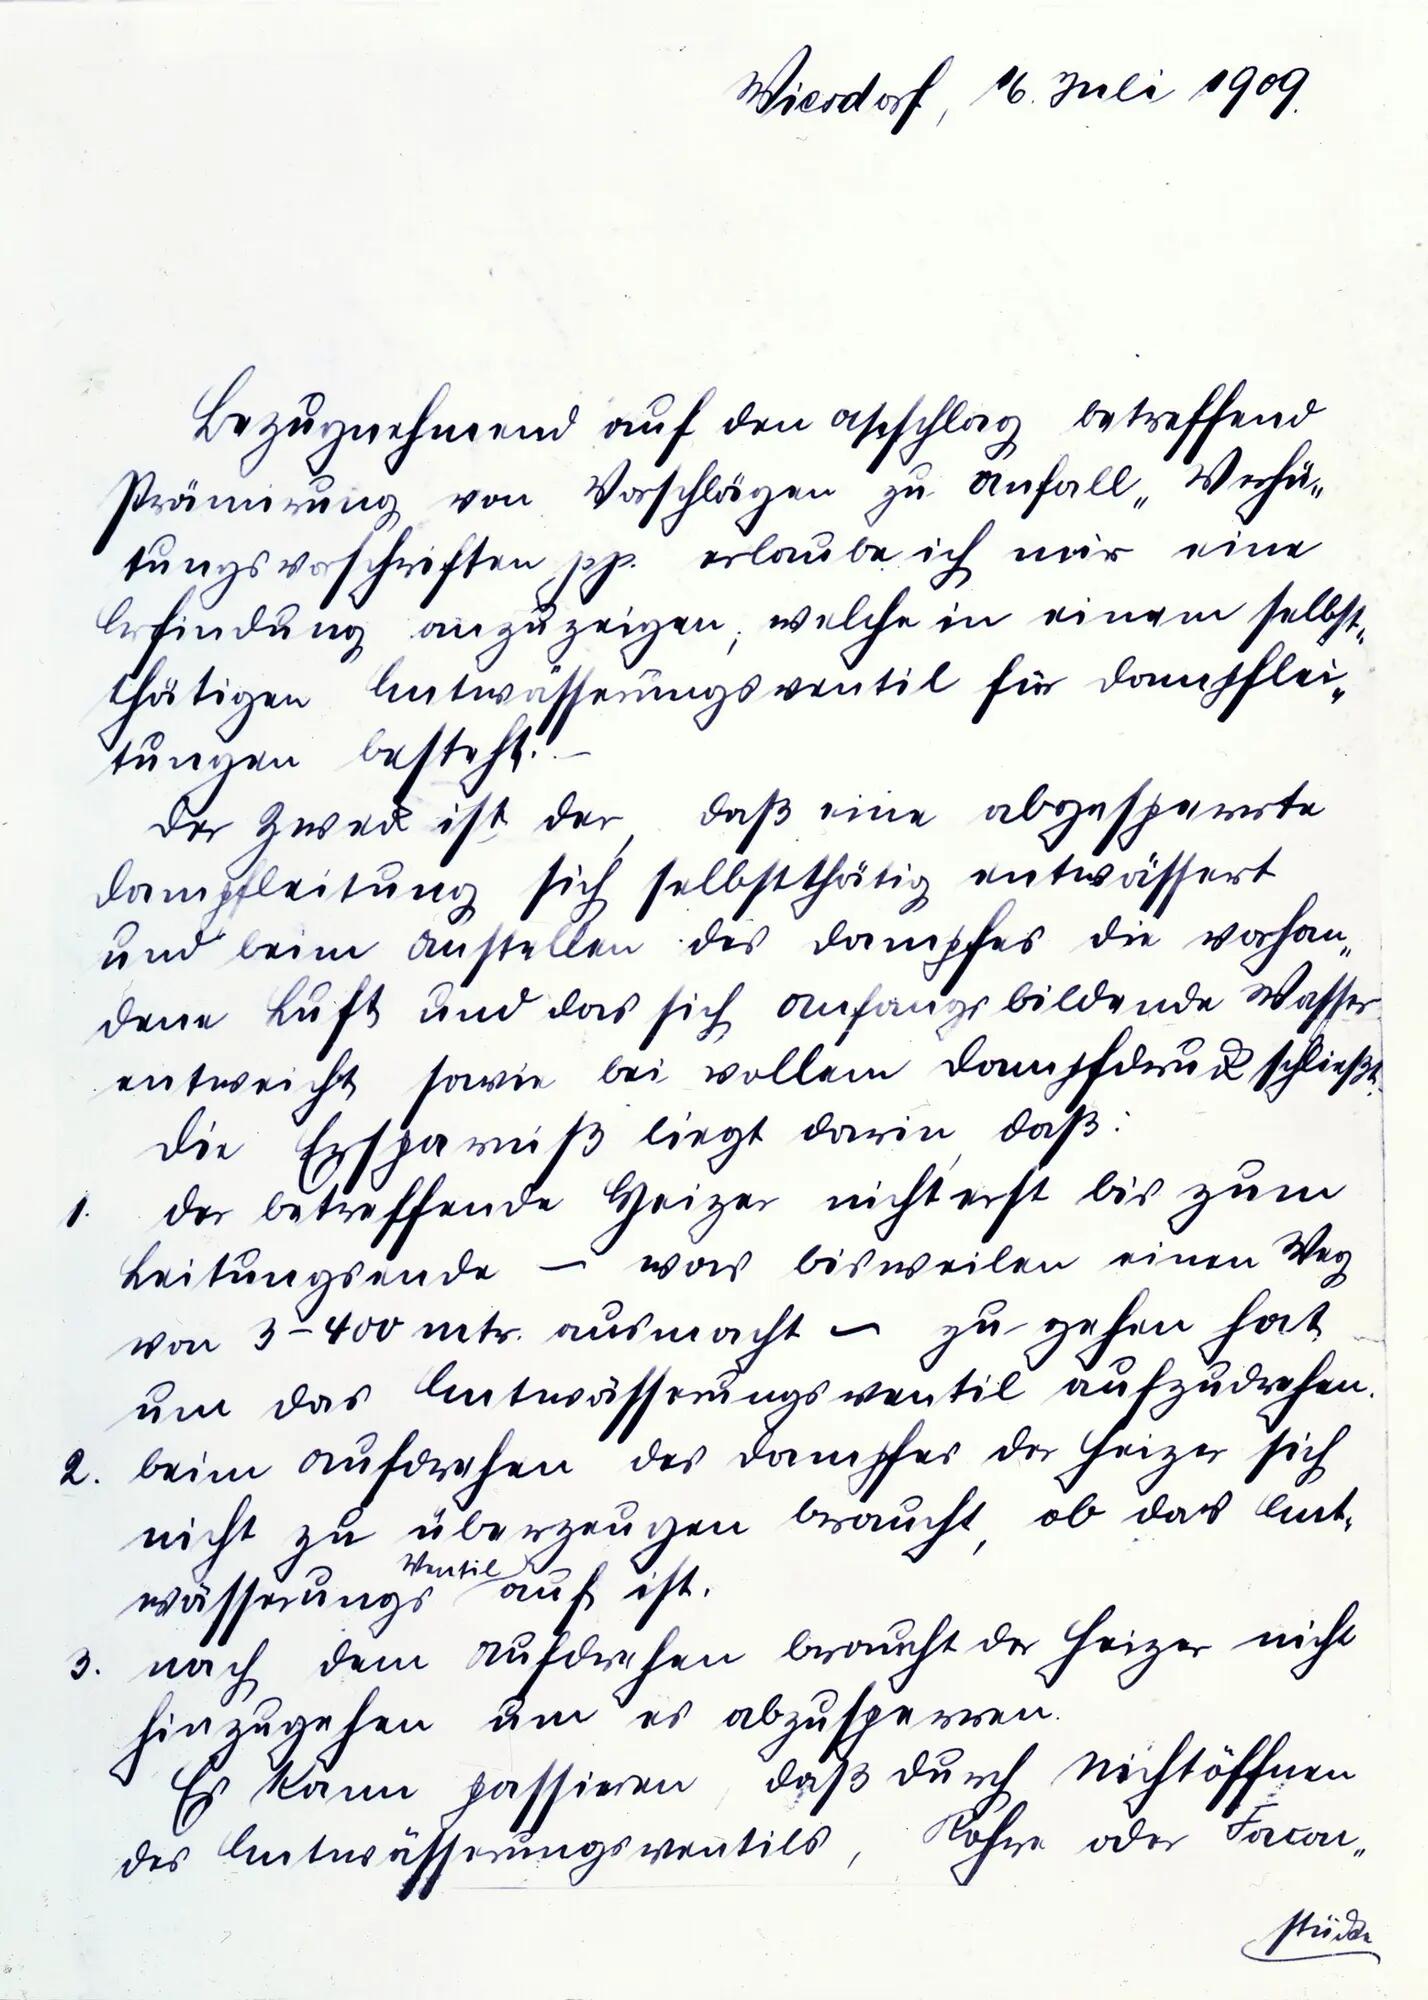 Wiesdorf, 16. Juli 1909.
Bezugnehmend auf den Anschlag betreffend
Prämirung von Vorschlägen zu Unfall„ Verhü„
tungsvorschriften pp. erlaube ich mir eine
Erfindung anzuzeigen, welche in einem selbst„
thätigen Entwässerungsventil für Dampflei„
tungen besteht. —
Der Zweck ist der, daß eine abgesperrte
Dampfleitung sich selbstthätig entwässert
und beim Anstellen des Dampfes die vorhan„
dene Luft und das sich anfangs bildende Wasser
entweicht sowie bei vollem Dampfdruck schließt.
Die Ersparniß liegt darin, daß:
1. der betreffende Heizer nicht erst bis zum
Leitungsende — was bisweilen einen Weg
von 3–400 mtr. ausmacht — zu gehen hat
um das Entwässerungsventil aufzudrehen.
2. beim Aufdrehen des Dampfes der Heizer sich
nicht zu überzeugen braucht, ob das Ent„
wässerungs Ventil auf ist.
3. nach dem Aufdrehen braucht der Heizer nicht
hinzugehen um es abzusperren.
Es kann passieren, daß durch Nichtöffnen
des Entwässerungsventils, Rohre oder Facon„
stücke